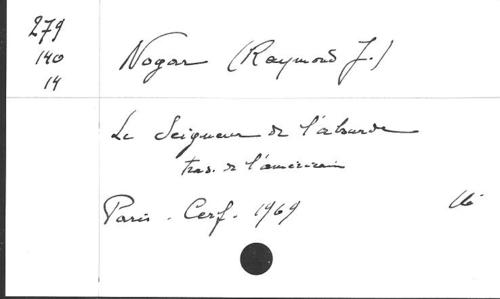 279
140
14
Nogar (Raymond J.)
Le Seigneur de l'absurde
trad. de l'américain
Paris. Cerf. 1969